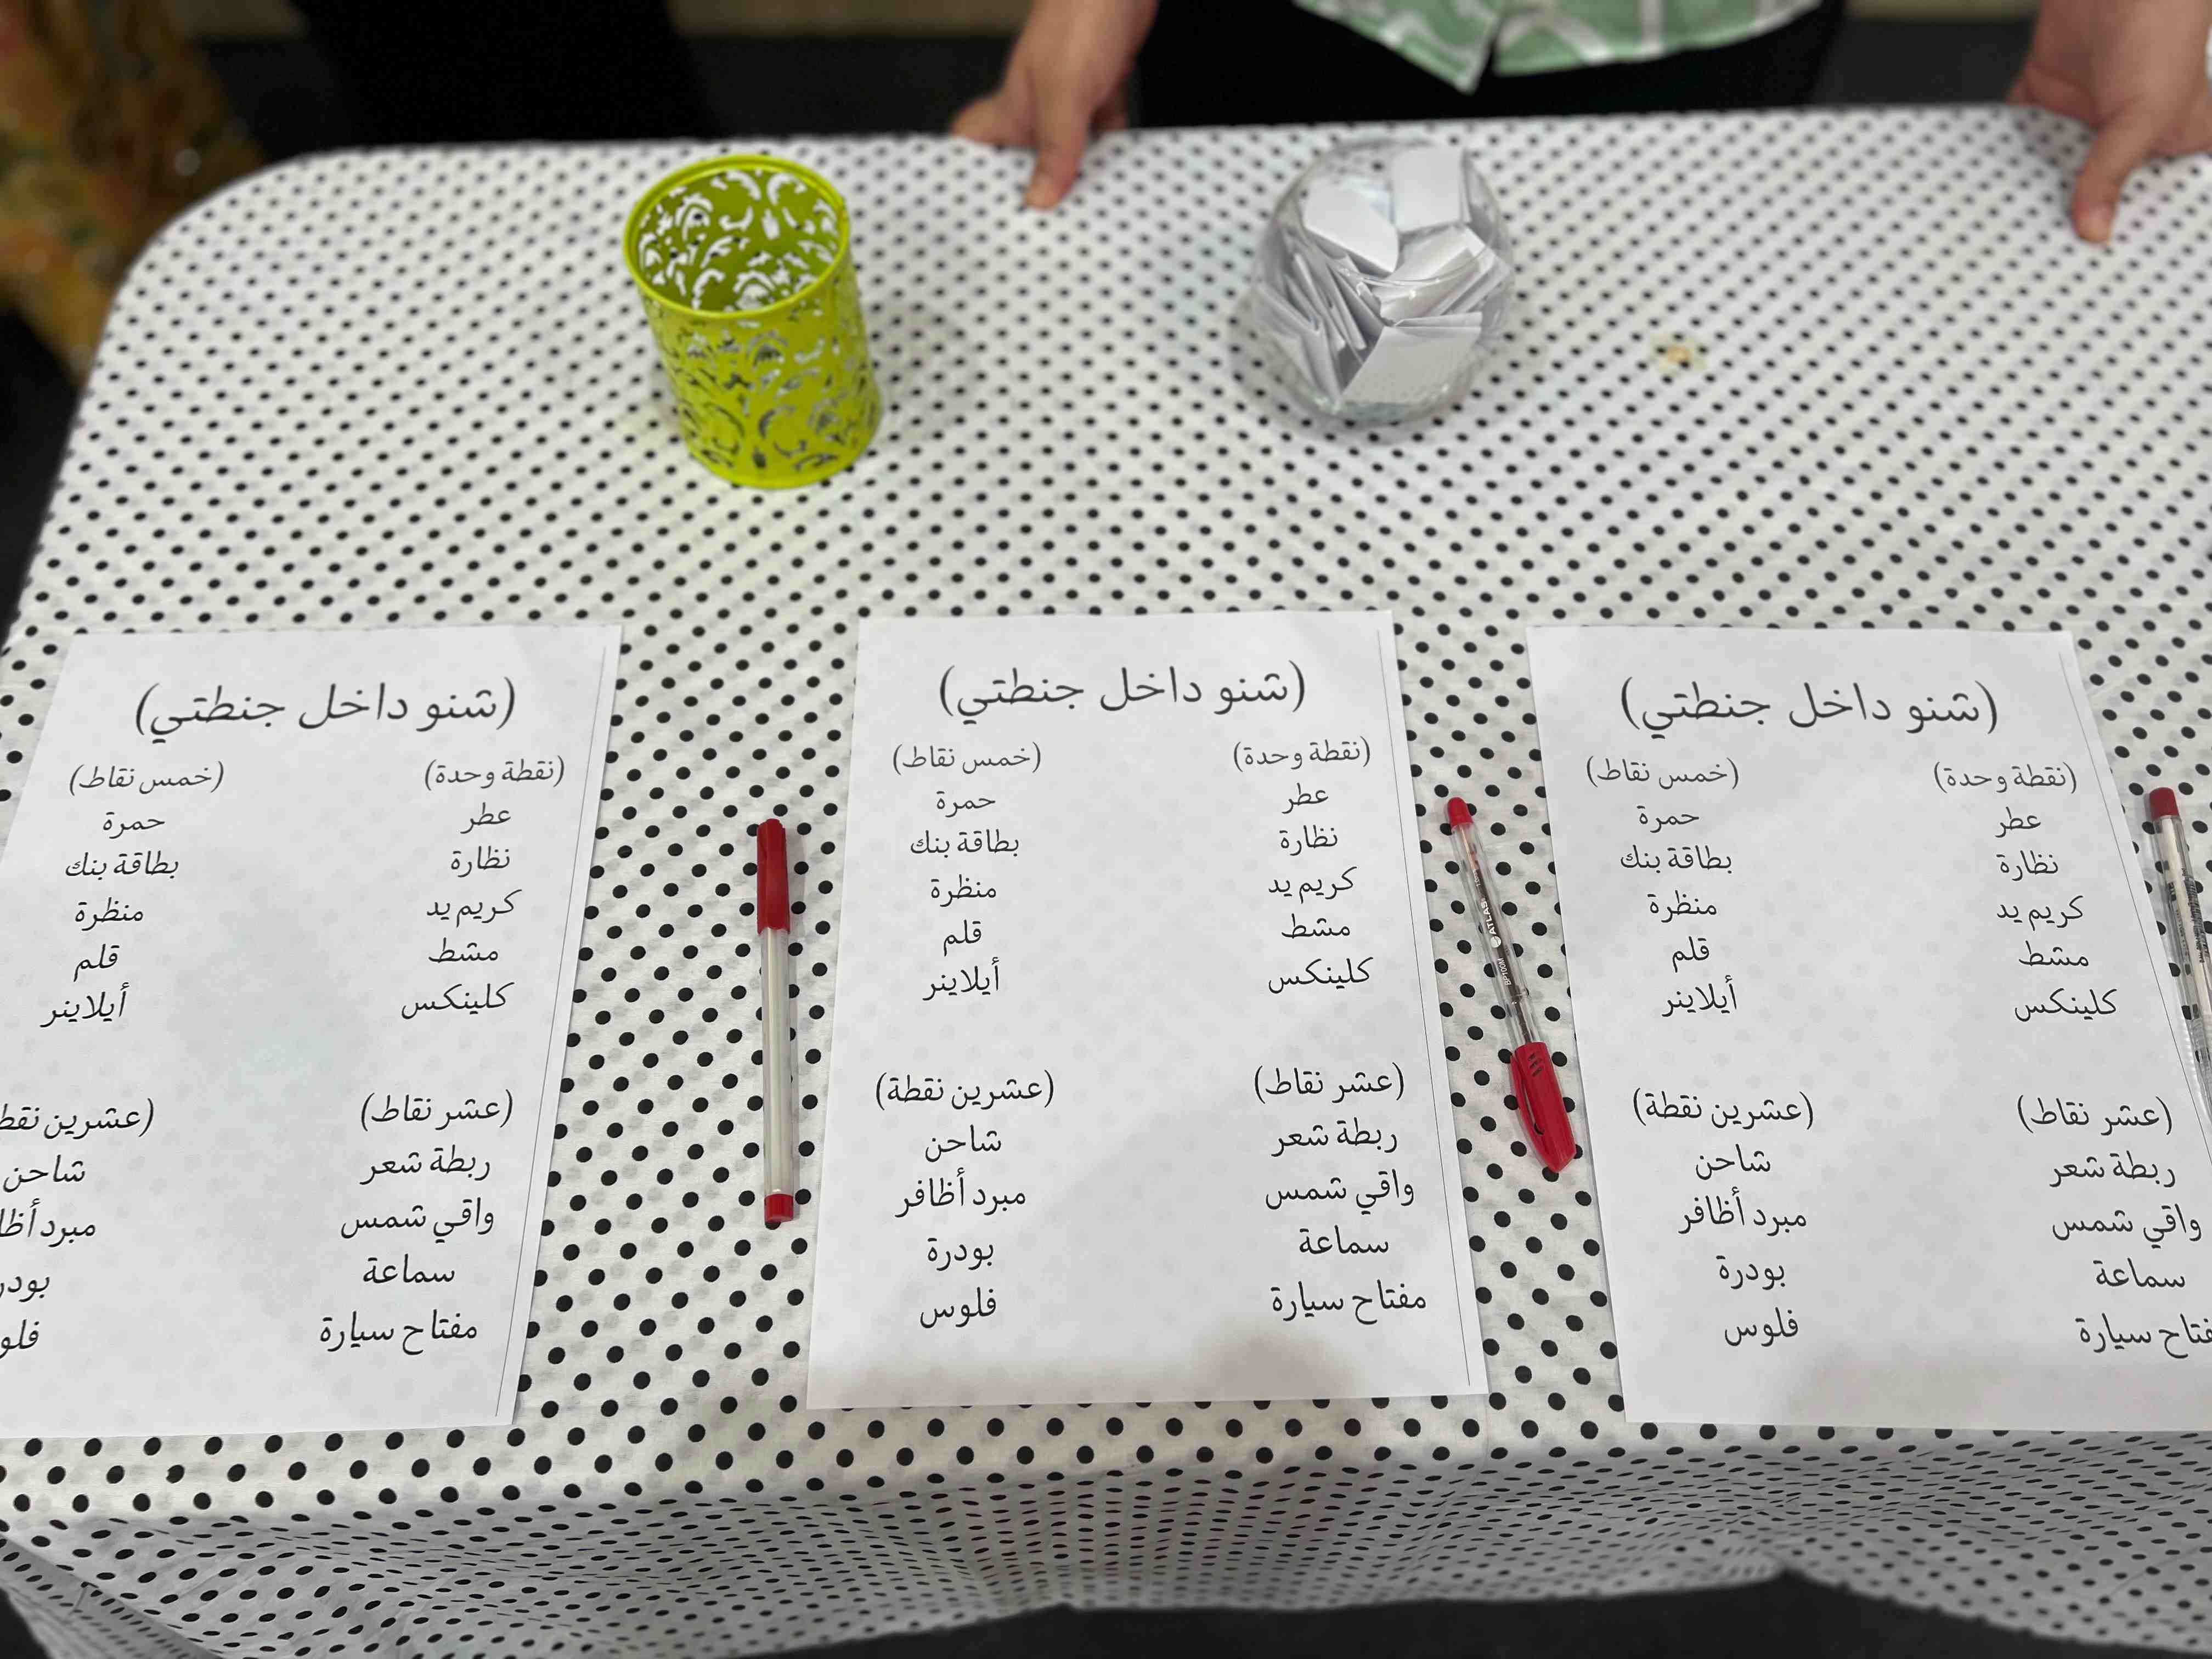 (شنو داخل جنطتي)
(نقطة وحدة) (خمس نقاط)
عطر حمرة
نظارة بطاقة بنك
كريم يد منظرة
مشط قلم
كلينكس أيلاينر
(عشر نقاط) (عشرين نقطة)
ربطة شعر شاحن
واقي شمس مبرد أظافر
سماعة بودرة
مفتاح سيارة فلوس
ATLAS
BP100M
(شنو داخل جنطتي)
(نقطة وحدة) (خمس نقاط)
عطر حمرة
نظارة بطاقة بنك
كريم يد منظرة
مشط قلم
كلينكس أيلاينر
(عشر نقاط) (عشرين نقطة)
ربطة شعر شاحن
واقي شمس مبرد أظافر
سماعة بودرة
سيارة فلوس
(شنو داخل جنطتي)
(نقطة وحدة) (خمس نقاط)
عطر حمرة
نظارة بطاقة بنك
كريم يد منظرة
مشط قلم
كلينكس أيلاينر
(عشر نقاط) (عشرين
ربطة شعر شاحن
واقي شمس مبرد
سماعة
مفتاح سيارة